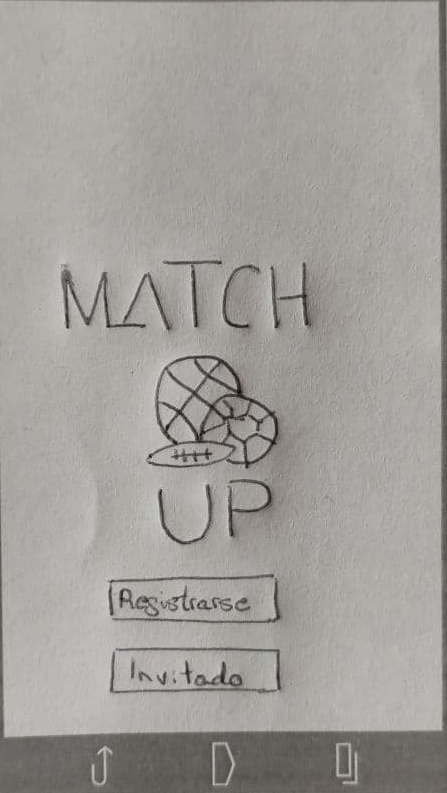 MATCH
UP
Registrarse
Invitado